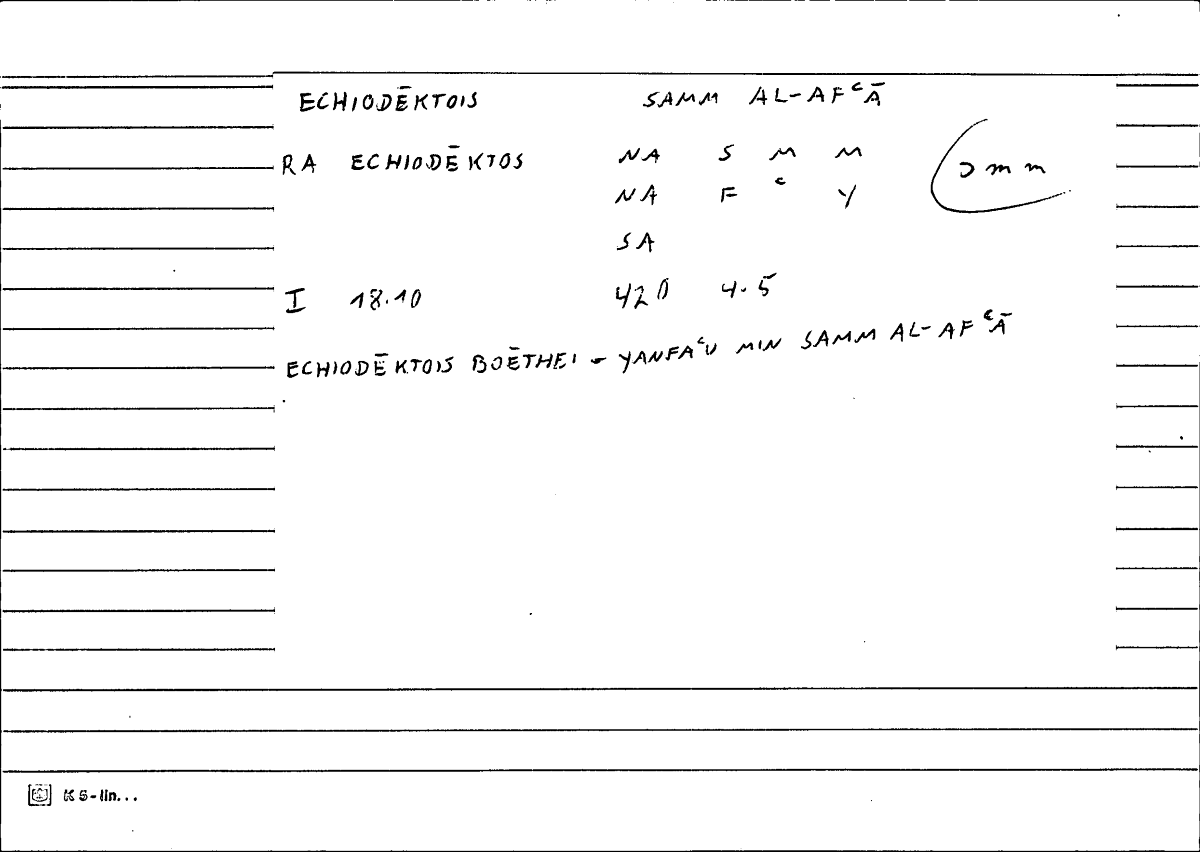 ECHIODĒKTOIS SAMM AL-AFᶜĀ
RA ECHIODĒKTOS NA S M M
NA F ᶜ Y
SA
I 18.10 420 4.5
ECHIODĒKTOIS BOĒTHEI - YANFAᶜU MIN SAMM AL-AFᶜĀ
K 5-lin...